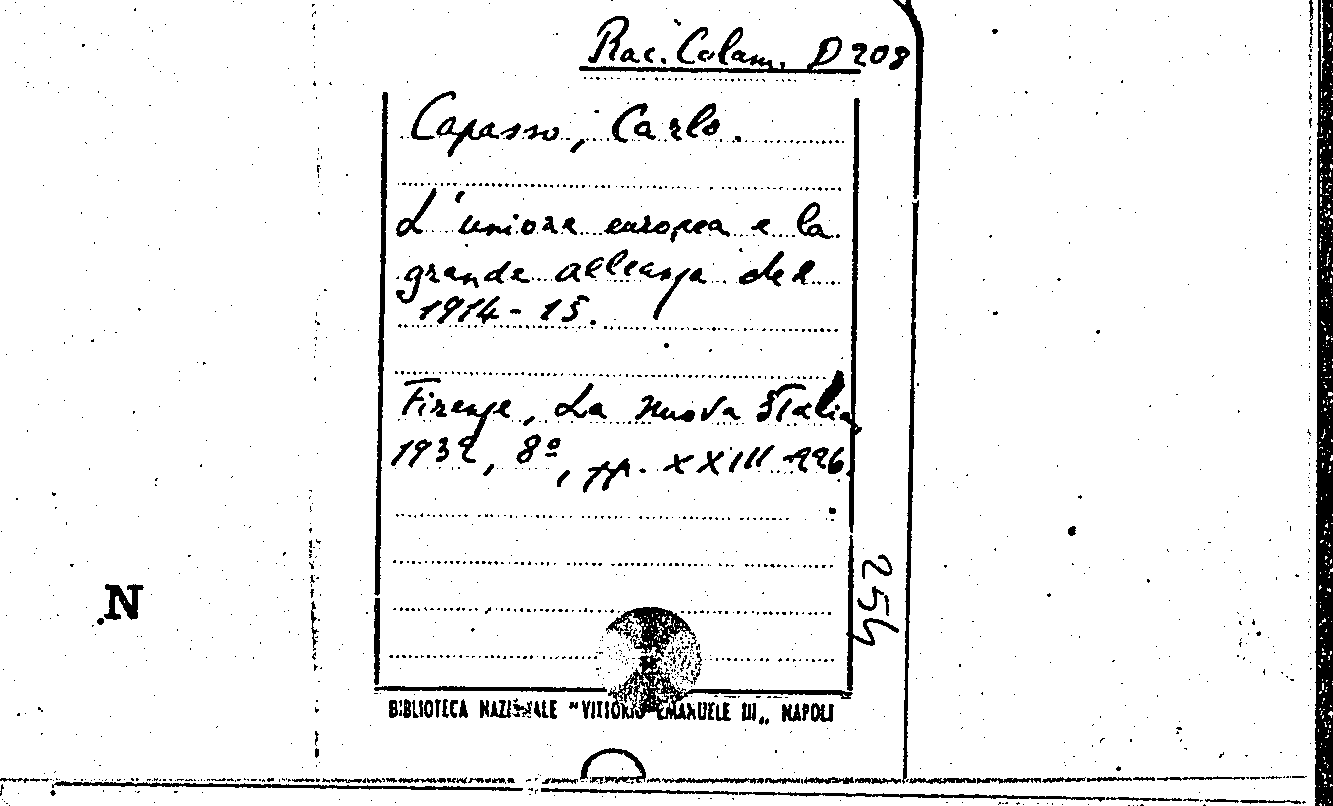 Rac. Colam. D 208
Capasso, Carlo.
L'unione europea e la
grande alleanza del
1914-15.
Firenze, La nuova Italia,
1932, 8º, pp. XXIII 226.
254
N
BIBLIOTECA NAZIONALE "VITTORIO EMANUELE III„ NAPOLI